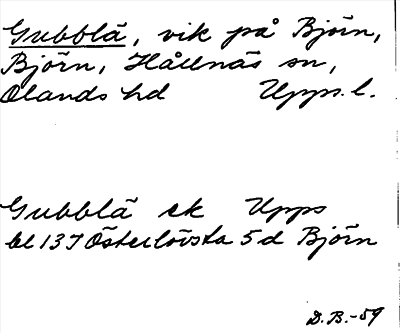 Gubblä, vik på Björn,
Björn, Hållnäs sn,
Olands hd Upps. l.
Gubblä ek Upps
bl 137 Österlövsta 5d Björn
D.B.-59